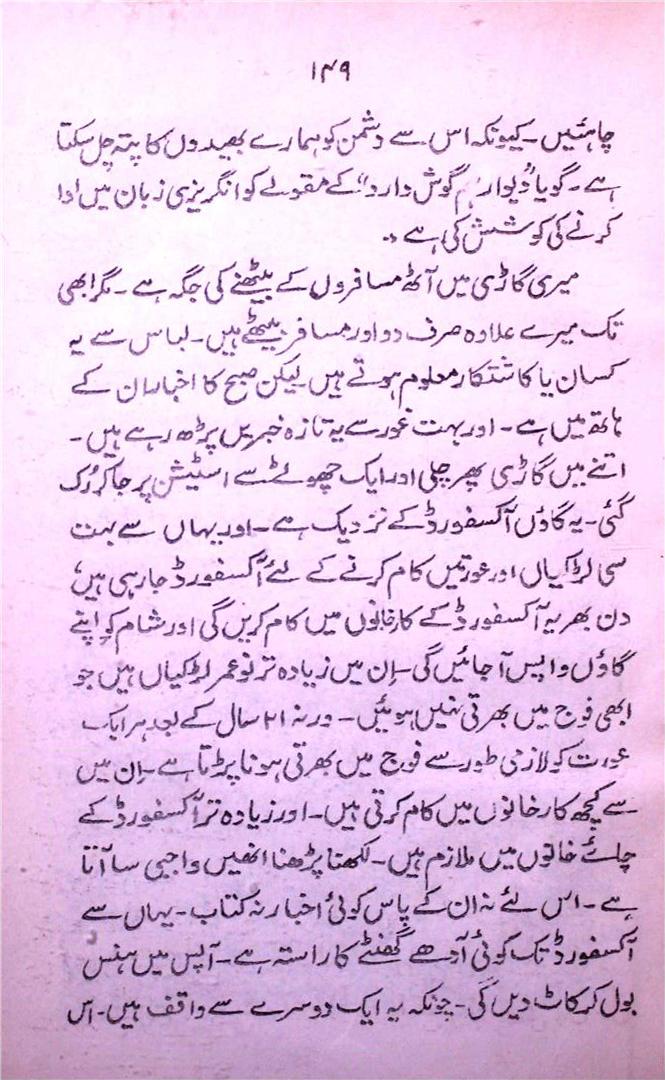 ۱۴۹
چاہئیں۔ کیونکہ اس سے دشمن کو ہمارے بھیدوں کا پتہ چل سکتا
ہے۔ گویا "دیوار ہم گوش دارد" کے مقولے کو انگریزی زبان میں ادا
کرنے کی کوشش کی ہے۔
میری گاڑی میں آٹھ مسافروں کے بیٹھنے کی جگہ ہے۔ مگر ابھی
تک میرے علاوہ صرف دو اور مسافر بیٹھے ہیں۔ لباس سے یہ
کسان یا کاشتکار معلوم ہوتے ہیں لیکن صبح کا اخبار ان کے
ہاتھ میں ہے۔ اور بہت غور سے یہ تازہ خبریں پڑھ رہے ہیں۔
اتنے میں گاڑی پھر چلی اور ایک چھوٹے سے اسٹیشن پر جا کر رُک
گئی۔ یہ گاؤں آکسفورڈ کے نزدیک ہے۔ اور یہاں سے بہت
سی لڑکیاں اور عورتیں کام کرنے کے لئے آکسفورڈ جا رہی ہیں،
دن بھر یہ آکسفورڈ کے کارخانوں میں کام کریں گی اور شام کو اپنے
گاؤں واپس آجائیں گی۔ اِن میں زیادہ تر نو عمر لڑکیاں ہیں جو
ابھی فوج میں بھرتی نہیں ہوئیں۔ ورنہ ۲۱ سال کے بعد ہر ایک
عورت کو لازمی طور سے فوج میں بھرتی ہونا پڑتا ہے۔ اِن میں
سے کچھ کارخانوں میں کام کرتی ہیں۔ اور زیادہ تر آکسفورڈ کے
چائے خانوں میں ملازم ہیں۔ لکھنا پڑھنا انھیں واجبی سا آتا
ہے۔ اس لئے نہ ان کے پاس کوئی اخبار نہ کتاب۔ یہاں سے
آکسفورڈ تک کوئی آدھے گھنٹے کا راستہ ہے۔ آپس میں ہنس
بول کر کاٹ دیں گی۔ چونکہ یہ ایک دوسرے سے واقف ہیں۔ اس